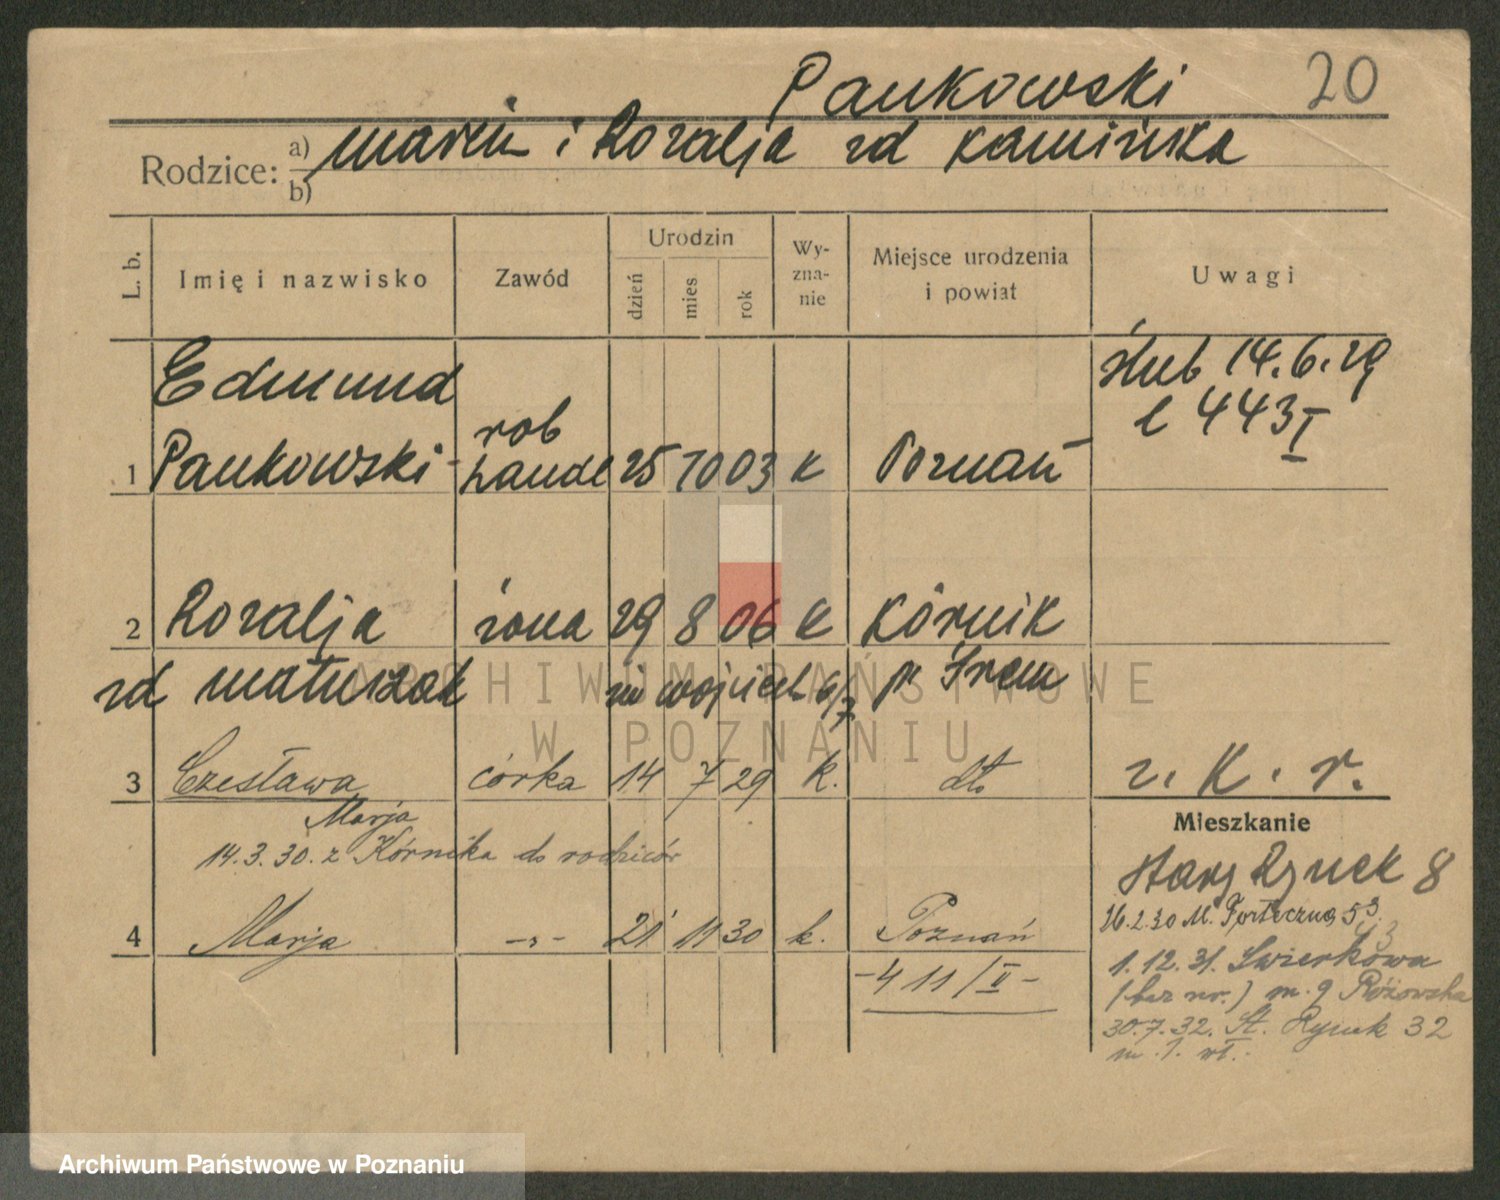 Pankowski 20
Rodzice: a) Marcin i Rozalja zd Kamińska
b)
L. b. Imię i nazwisko Zawód Urodzin dzień mies rok Wy- zna- nie Miejsce urodzenia i powiat Uwagi
Edmund ślub 14.6.29
rob l 443 I
1 Pankowski handl 25 10 03 k Poznań
2 Rozalja żona 29 8 06 k Kórnik
zd Matuszak wojciech p Śrem
ARCHIWUM PAŃSTWOWE
W POZNANIU
3 Czesława córka 14 7 29 k. dto z. K. r.
Marja Mieszkanie
14.3.30. z Kórnika do rodziców
Stary Rynek 8
26.2.30 M. Forteczna 53.
4 Marja -"- 21 11 30 k. Poznań
1.12.31. Świerkowa
-411/II-
(bez nr.) m. 9 Różowska
30.7.32. St. Rynek 32
m. 1. wł.
Archiwum Państwowe w Poznaniu